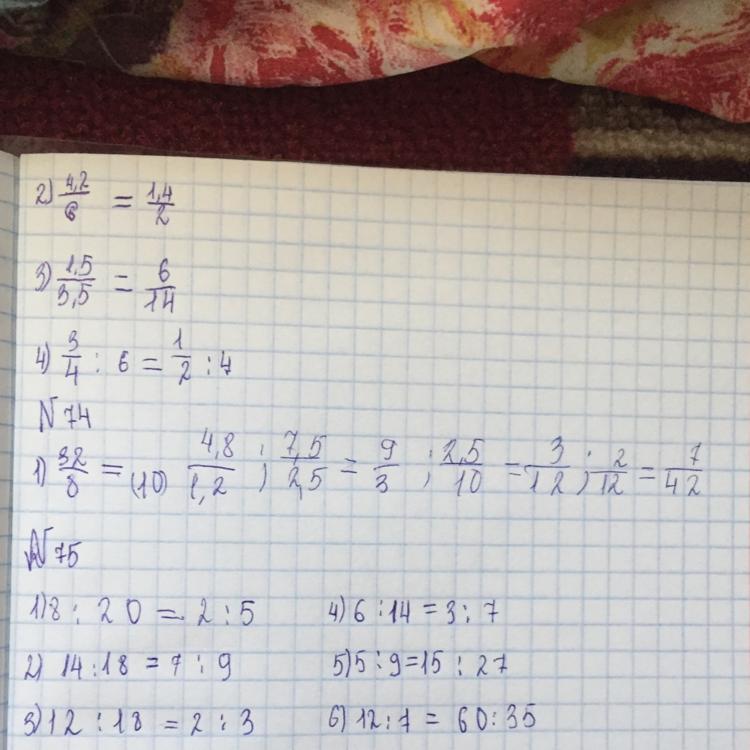 2) 4,2/6 = 1,4/2
3) 1,5/3,5 = 6/14
4) 3/4 : 6 = 1/2 : 4
N 74
1) 32/8 = (10) 4,8/1,2 ; 7,5/2,5 = 9/3 ; 2,5/10 = 3/12 ; 2/12 = 7/42
N 75
1) 8 : 20 = 2 : 5 4) 6 : 14 = 3 : 7
2) 14 : 18 = 7 : 9 5) 5 : 9 = 15 : 27
3) 12 : 18 = 2 : 3 6) 12 : 7 = 60 : 35